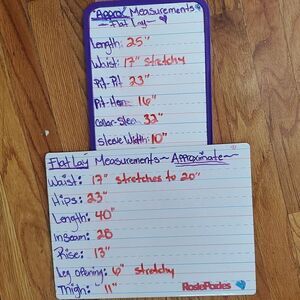 Approx Measurements
~ Flat Lay ~
Length: 25"
Waist: 17" stretchy
Pit-Pit 23"
Pit-Hem: 16"
Collar-Slee 32"
Sleeve Width: 10"
Flat Lay Measurements ~ Approximate ~
Waist: 17" stretches to 20"
Hips: 23"
Length: 40"
Inseam: 28
Rise: 13"
Leg Opening: 6" stretchy
Thigh: 11"
RosiePosies